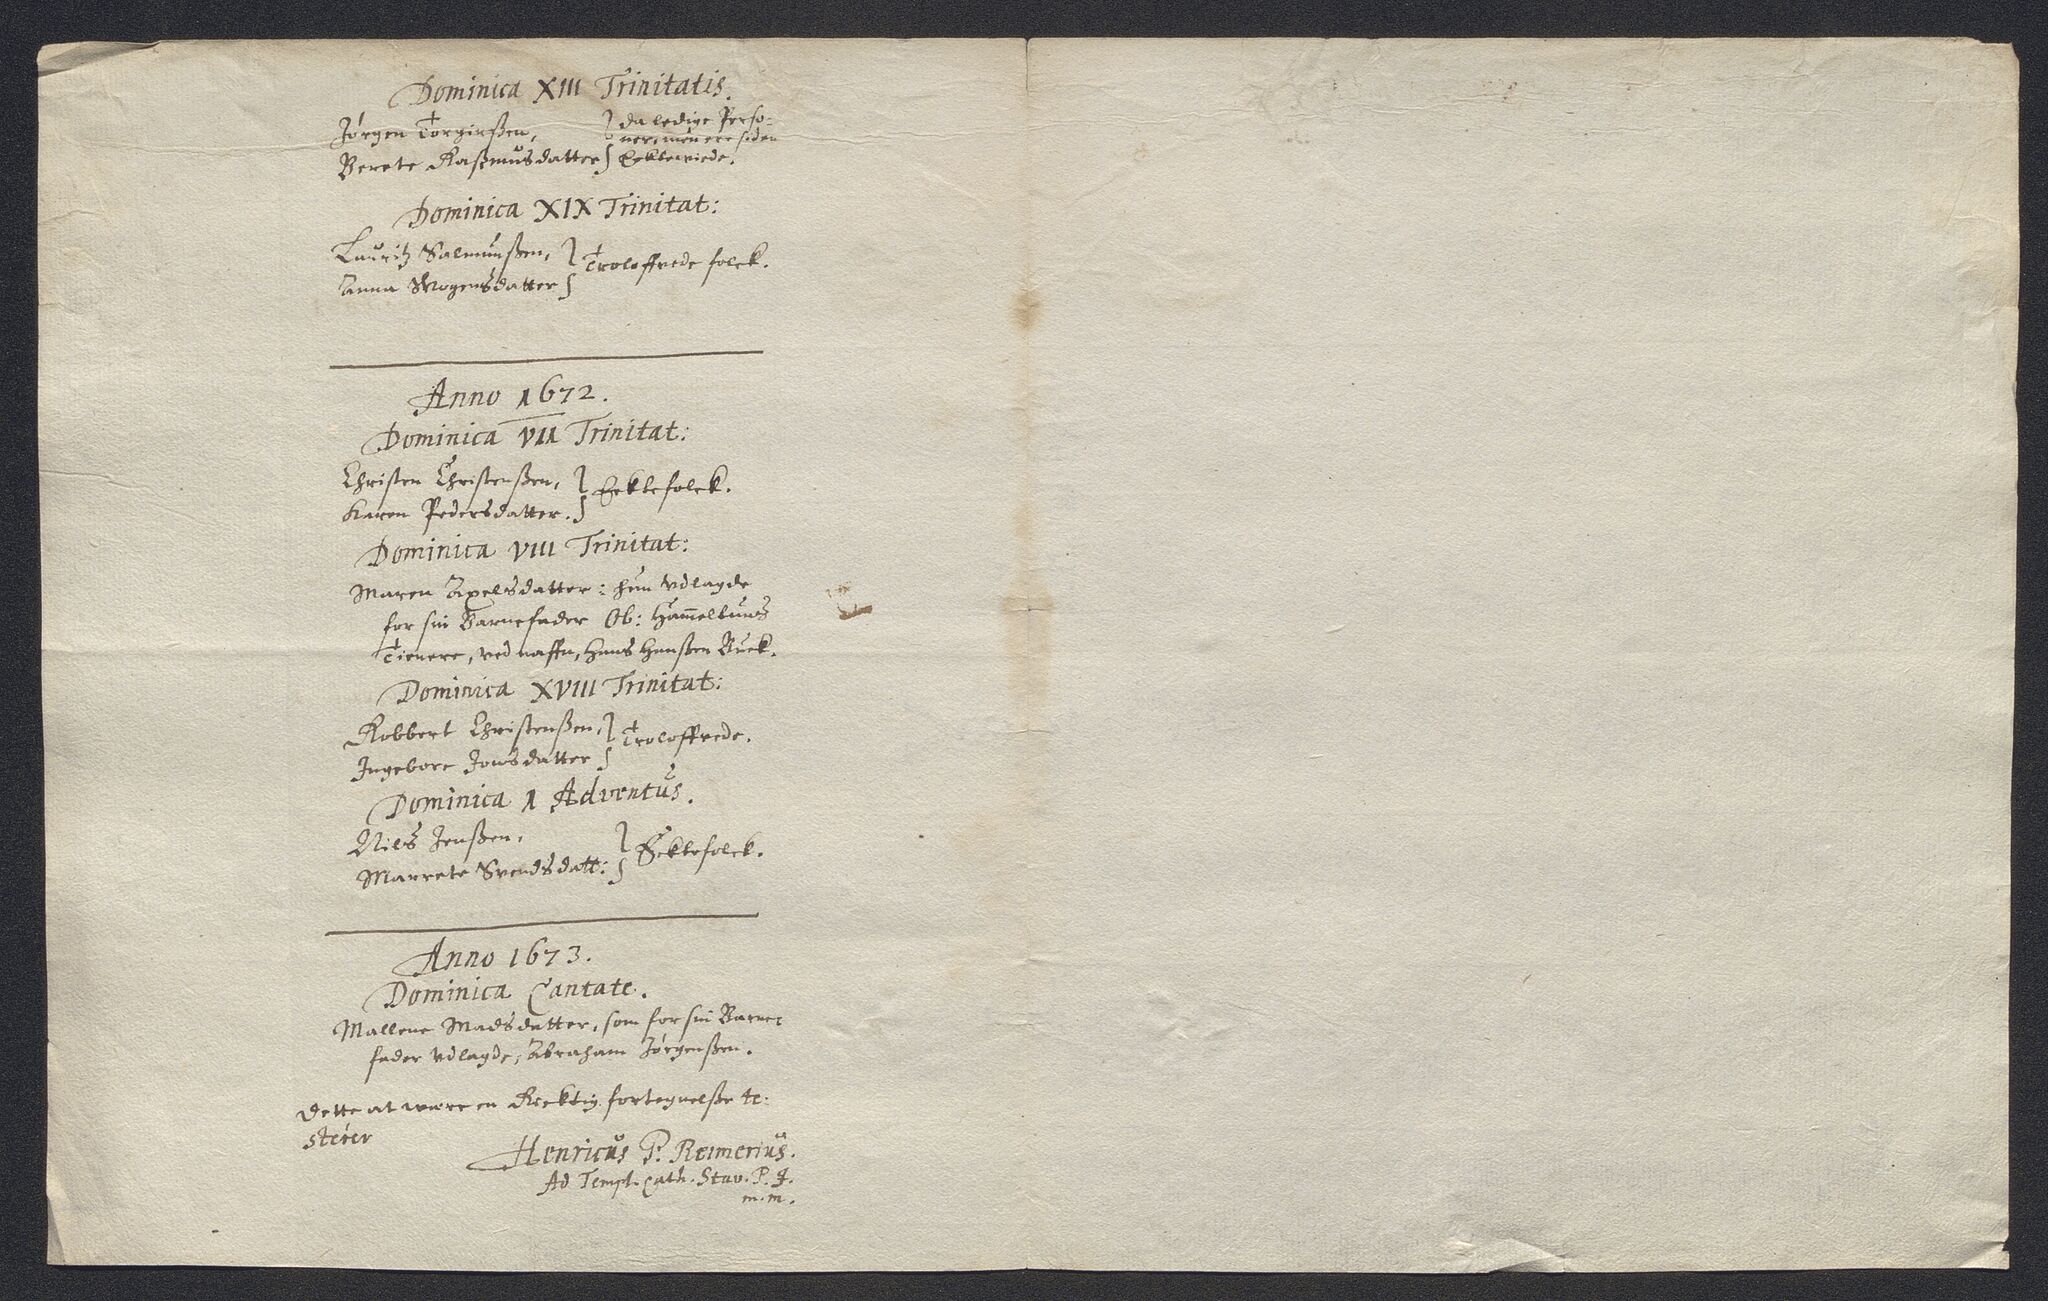 Dominica XIII Trinitatis.
Jørgen Torgierßen, } da ledige Perso-
ner, men ere siden
Berete Raßmusdatter } Ecktewiede.
Dominica XIX Trinitat:
Lauritz Salmunßen, } Troloffvede folck.
Anna Mogensdatter }
Anno 1672.
Dominica VII Trinitat:
Christen Christenßen, } Ecktefolck.
Karen Pedersdatter. }
Dominica VIII Trinitat:
Maren Axelsdatter: hun vdlagde
for sin Barnefader Ob: Hammeltuns
Tienere, ved naffn, Hans Hanßen Buck.
Dominica XVIII Trinitat:
Robbert Christenßen, } Troloffvede.
Ingebore Jonsdatter }
Dominica 1 Adventus.
Niels Jenßen, } Ecktefolck.
Marrete Svendsdatt: }
Anno 1673.
Dominica Cantate.
Mallene Madsdatter, som for sin Barne-
fader vdlagde, Abraham Jørgenßen.
Dette at were en Recktig fortegnelße te-
sterer
Henricus P. Reimerius.
Ad Templ. Cath. Stav. P. J.
m.m.